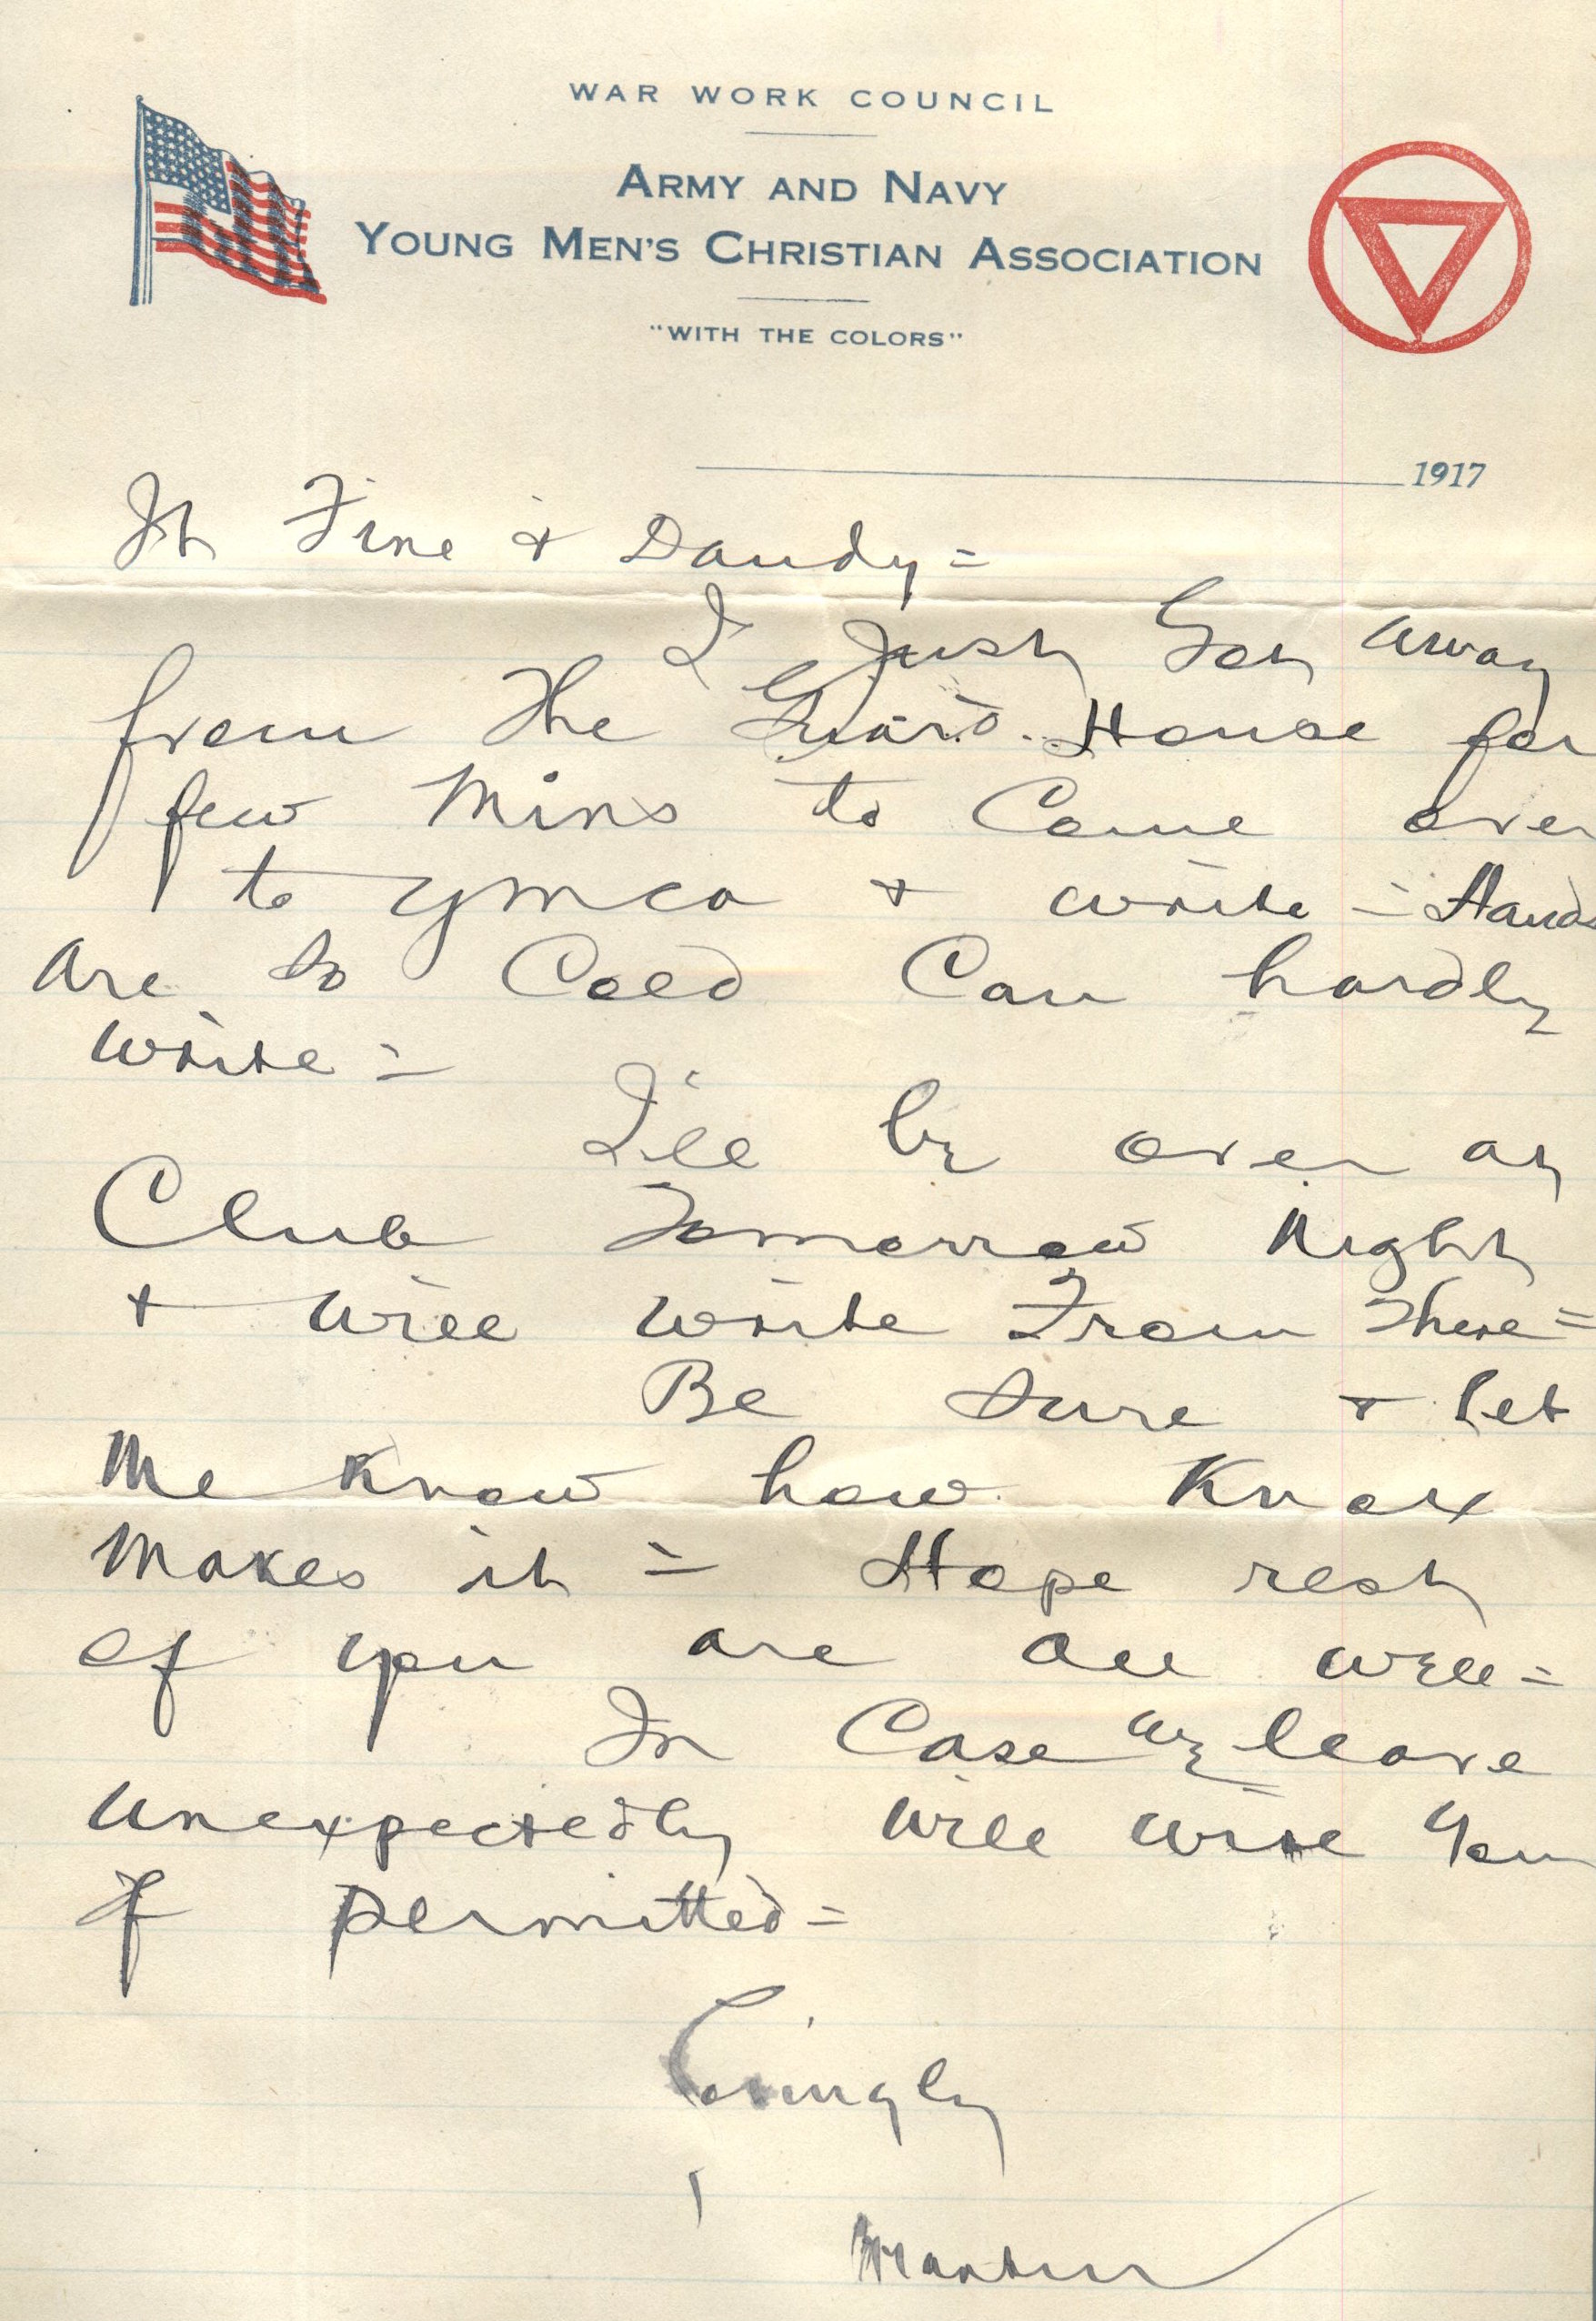 WAR WORK COUNCIL
ARMY AND NAVY
YOUNG MEN'S CHRISTIAN ASSOCIATION
"WITH THE COLORS"
1917
It Fine & Dandy =
I Just Got away
from The Guard House for
few Mins to Come over
to YMCA & write = Hands
are so Cold Can hardly
write =
I'll be over at
Club Tomorrow Night
& will write From There =
Be sure & let
Me Know how Knox
Makes it = Hope rest
of you are all well =
In Case we leave
unexpectedly will wire You
if permitted =
Lovingly
Martin